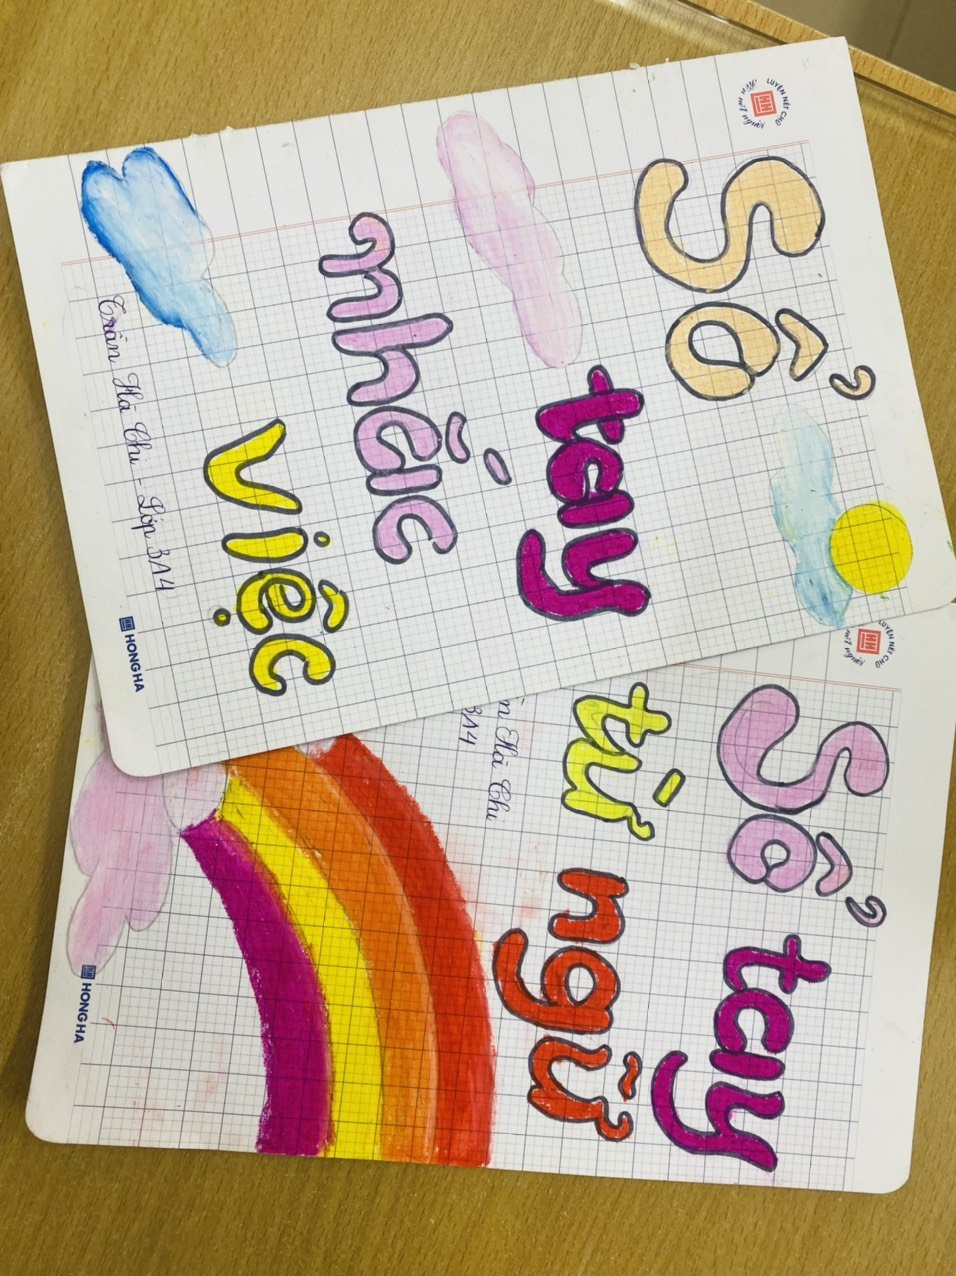 LUYỆN NÉT CHỮ
Rèn nết người
Sổ
tay
nhắc
việc
Trần Hà Chi - Lớp 3A4
HONG HA
LUYỆN NÉT CHỮ
nết người
Sổ tay
từ ngữ
Hà Chi
3A4
HONG HA